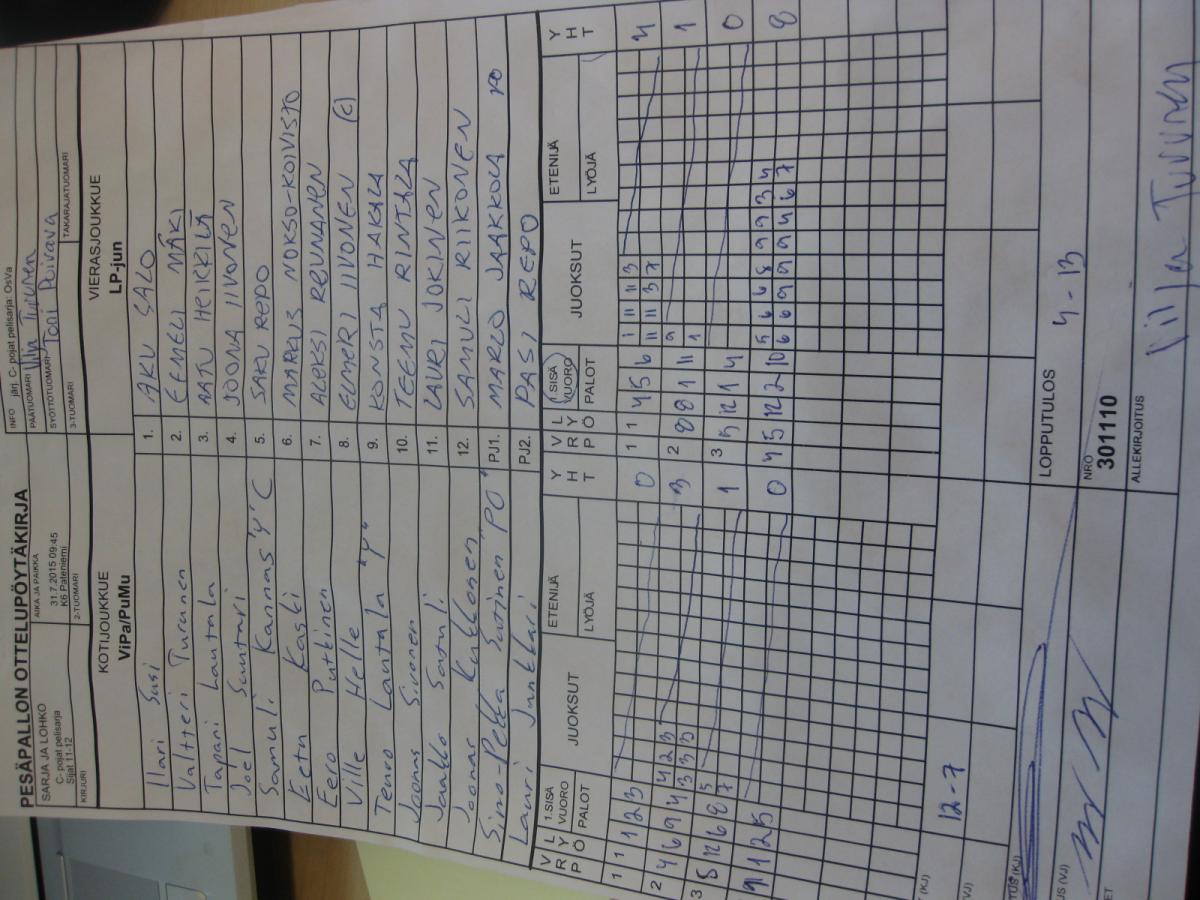 PESÄPALLON OTTELUPÖYTÄKIRJA
SARJA JA LOHKO
C- pojat pelisarja
Sijat 11-12
AIKA JA PAIKKA
31.7.2015 09:45
K6 Pateniemi
INFO järj. C- pojat pelisarja: OsVa
PÄÄTUOMARI Ilja Turunen
SYÖTTÖTUOMARI Toni Poivava
KIRJURI
2-TUOMARI
3-TUOMARI
TAKARAJATUOMARI
KOTIJOUKKUE
ViPa/PuMu
VIERASJOUKKUE
LP-jun
Ilari Susi 1. AKU SALO
Valtteri Turunen 2. EEMELI MÄKI
Tapani Lautala 3. AATU HEIKKILÄ
Joel Suutari 4. JOONA IIVONEN
Samuli Kannas "Y" C 5. SAKU REPO
Eetu Kaski 6. MARKUS NOKSO-KOIVISTO
Eero Putkinen 7. ALEKSI REUNANEN
Ville Helle 8. ELMERI IIVONEN (C)
Teuvo Lautala "Y" 9. KONSTA HAKALA
Joonas Sironen 10. TEEMU RINTALA
Jaakko Satuli 11. LAURI JOKINEN
Joonas Kukkonen 12. SAMULI RIIKONEN
Simo-Pekka Suoinen "PO" PJ1. MARCO JAAKKOLA PO
Lauri Junkkari PJ2. PASI REPO
V R P L Y Ö 1.SISÄ VUORO PALOT JUOKSUT ETENIJÄ LYÖJÄ Y H T
V R P L Y Ö 1.SISÄ VUORO PALOT JUOKSUT ETENIJÄ LYÖJÄ Y H T
1 1 1 2 3 0
1 1 4 5 6 1 11 11 3 4
11 11 3 7
2 4 6 9 4 4 2 3 3
3 3 3
2 8 8 1 11 9 1
1
3 5 12 6 8 5 1
7
3 5 12 1 4 0
9 1 2 5 0
4 5 12 2 10 5 6 6 8 9 9 3 4 8
6 9 9 9 4 6 7
12-7
LOPPUTULOS 4 - 13
NRO
301110
ALLEKIRJOITUS
Ilja Turunen